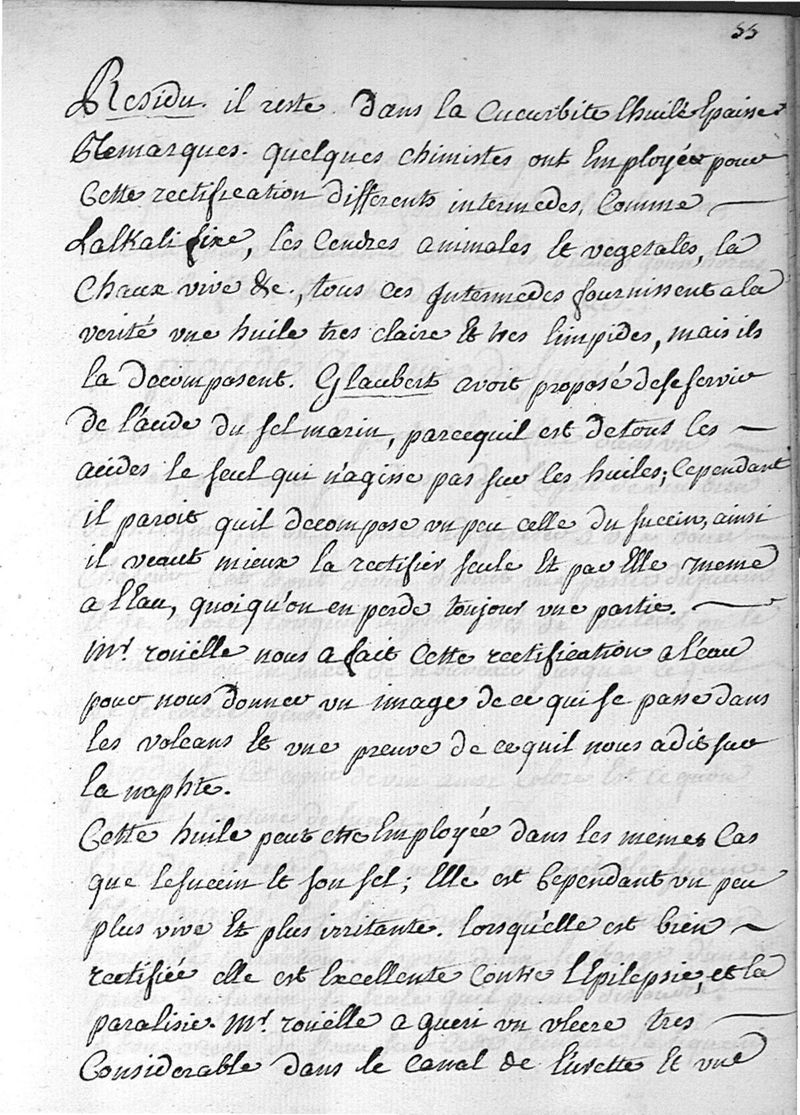 55
Residu. il reste dans la Cucurbite l'huile Epaisse
Remarques. quelques chimistes ont Employés pour
Cette rectification differents intermedes, Comme
Lalkali fixe, les Cendres animales Et vegetales, la
Chaux vive &c., tous ces Intermedes fournissent a la
verité une huile tres claire Et tres limpides, mais ils
la decomposent. Glaubert avoit proposé de se servir
de l'acide du sel marin, parcequil est de tous les
acides le seul qui n'agisse pas sur les huiles; Cependant
il paroit quil decompose un peu celle du succin, ainsi
il veaut mieux la rectifier seule Et par Elle meme
a l'Eau, quoiqu'on en perde toujour une partie.
Mr. rouëlle nous a fait Cette rectification a l'éau
pour nous donner un image de ce qui se passe dans
les volcans Et une preuve de ce quil nous a dit sur
la naphte.
Cette huile peut etre Employée dans les memes Cas
que le succin Et son sel; Elle est Cependant un peu
plus vive Et plus irritante. lorsqu'elle est bien
rectifiée elle est Excellente Contre l'Epilepsie, et la
paralisie. Mr. rouëlle a gueri un ulcere tres
Considerable dans le canal de l'urette Et une